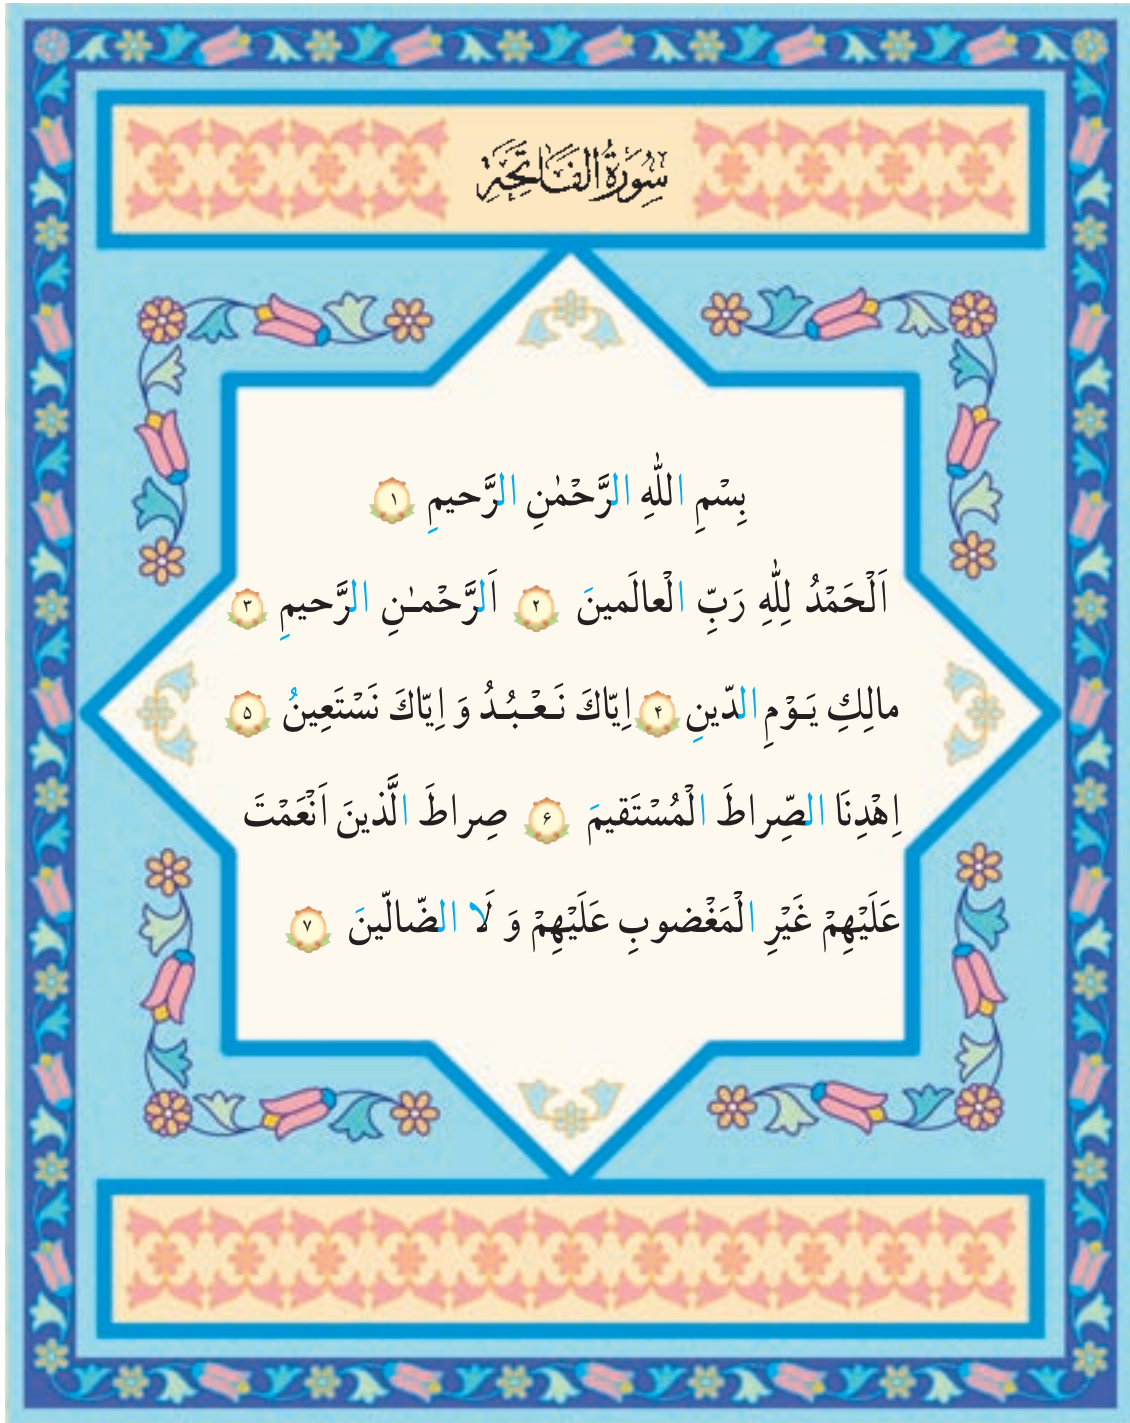 سُورَةُ الفَاتِحَةِ
بِسْمِ اللّٰهِ الرَّحْمٰنِ الرَّحیمِ ۱
اَلْحَمْدُ لِلّٰهِ رَبِّ الْعالَمینَ ۲ اَلرَّحْمـٰنِ الرَّحیمِ ۳
مالِكِ یَـوْمِ الدّینِ ۴ اِیّاكَ نَـعْـبُـدُ وَ اِیّاكَ نَسْتَعِینُ ۵
اِهْدِنَا الصِّراطَ الْمُسْتَقیمَ ۶ صِراطَ الَّذینَ اَنْعَمْتَ
عَلَیْهِمْ غَیْرِ الْمَغْضوبِ عَلَیْهِمْ وَ لَا الضّالّینَ ۷